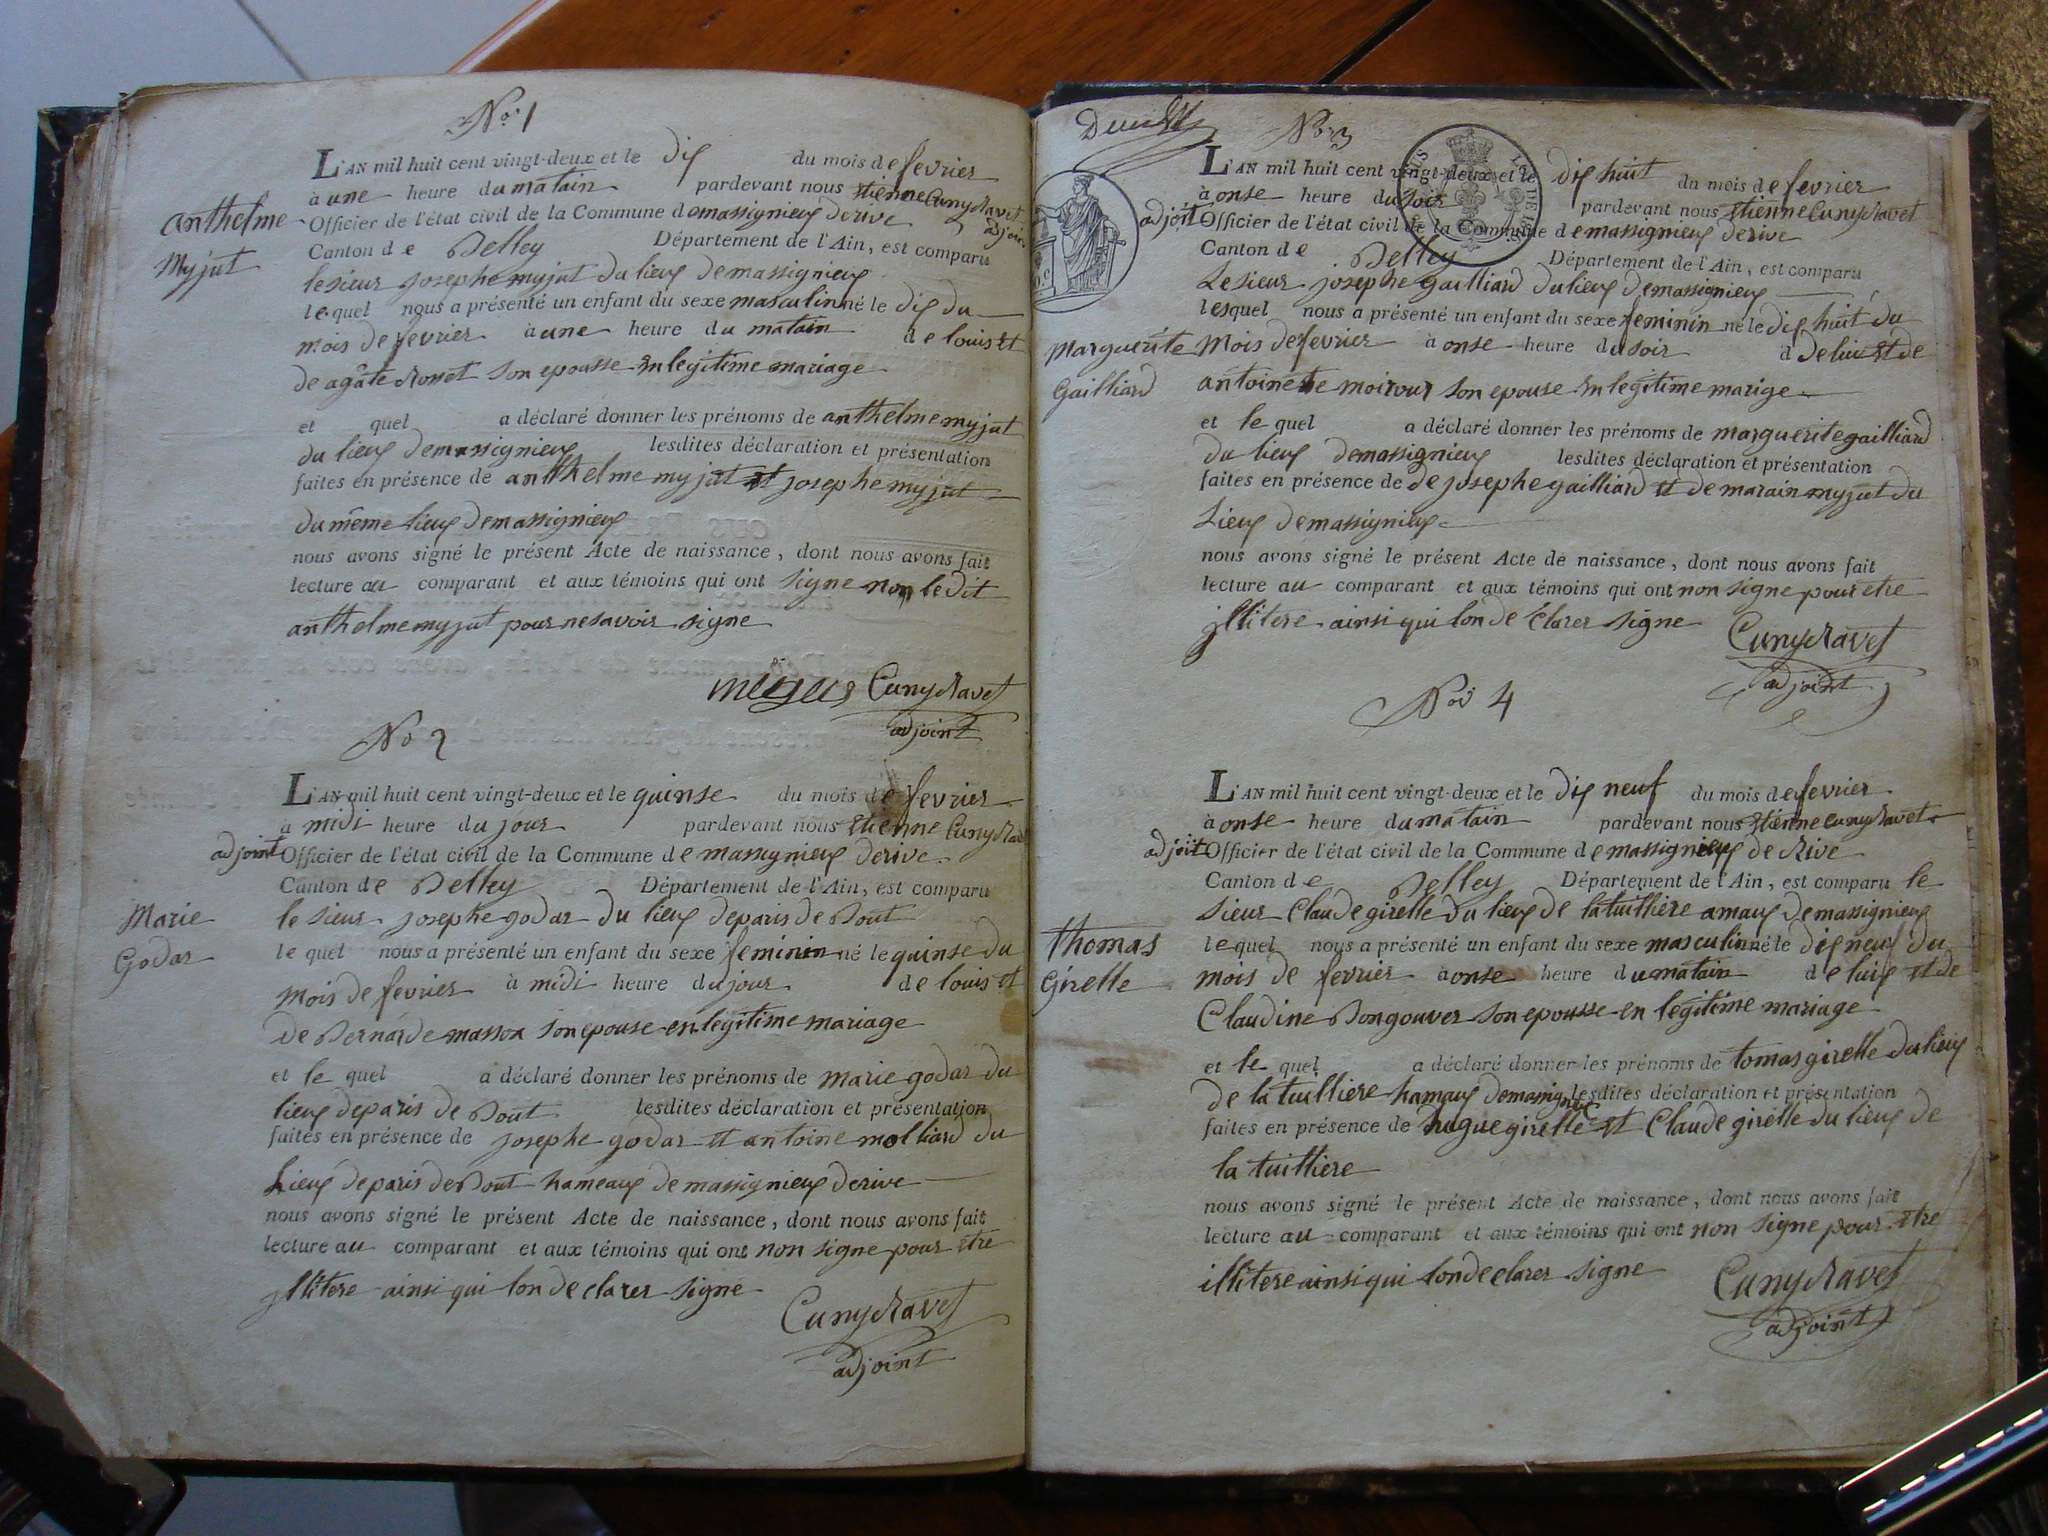 No. 1
L'AN mil huit cent vingt-deux et le dix du mois de fevrier
à une heure du matain pardevant nous etienne Cuny Ravet
adjoin
anthelme
myjut
Officier de l'état civil de la Commune de massignieux derive
Canton de Belley Département de l'Ain, est comparu
le sieur josephe myjut du lieux de massignieux
lequel nous a présenté un enfant du sexe masculin né le dix du
mois de fevrier à une heure du matain de louis et
de agate Rosset son epousse en legitime mariage
et quel a déclaré donner les prénoms de anthelme myjut
du lieux demassignieux lesdites déclaration et présentation
faites en présence de anthelme myjut et josephe myjut
du même lieux demassignieux
nous avons signé le présent Acte de naissance, dont nous avons fait
lecture au comparant et aux témoins qui ont signe non ledit
anthelme myjut pour ne savoir signe
Cuny Ravet
adjoint
No 2
L'AN mil huit cent vingt-deux et le quinse du mois de fevrier
à midi heure du jour pardevant nous etienne Cuny Rav
adjoint Officier de l'état civil de la Commune de massignieux derive
Canton de Belley Département de l'Ain, est comparu
Marie
Godar
le sieur josephe godar du lieux deparis de Bout
le quel nous a présenté un enfant du sexe feminin né le quinse du
mois de fevrier à midi heure du jour de louis et
de Bernarde masson son epouse en legitime mariage
et le quel a déclaré donner les prénoms de marie godar du
lieux deparis de Bout lesdites déclaration et présentation
faites en présence de josephe godar et antoine molliard du
Lieux deparis de Bout hameaux de massignieux derive
nous avons signé le présent Acte de naissance, dont nous avons fait
lecture au comparant et aux témoins qui ont non signe pour etre
jllitere ainsi qui lon de clarer signe
Cuny Ravet
adjoint
No 3
L'AN mil huit cent vingt-deux et le dix huit du mois de fevrier
à onse heure du soir pardevant nous etienne Cuny Ravet
adjoit Officier de l'état civil de la Commune de massignieux derive
Canton de Belley Département de l'Ain, est comparu
Le sieur josephe gailliard du lieux demassignieux
lesquel nous a présenté un enfant du sexe feminin né le dix huit du
Marguerite
Gailliard
mois de fevrier à onse heure du soir d de lui et de
antoinete moirour son epouse en legitime marige
et le quel a déclaré donner les prénoms de marguerite gailliard
du lieux demassignieux lesdites déclaration et présentation
faites en présence de de josephe gailliard et de marain myjut du
Lieux demassignieux
nous avons signé le présent Acte de naissance, dont nous avons fait
lecture au comparant et aux témoins qui ont non signe pour etre
jllitere ainsi qui lon de Clarer signe
Cuny Ravet
adjoint
No 4
L'AN mil huit cent vingt-deux et le dix neuf du mois de fevrier
à onse heure du matain pardevant nous etienne Cuny Ravet
adjoit Officier de l'état civil de la Commune de massignieux de Rive
Canton de Belley Département de l'Ain, est comparu le
sieur Claude girelle du lieux de la tuilliere amaux demassignieux
thomas
Girelle
lequel nous a présenté un enfant du sexe masculin né le dix neuf du
mois de fevrier à onse heure du matain de luix et de
Claudine Bongouver son epousse en legitime mariage
et le quel a déclaré donner les prénoms de tomas girelle du lieux
de la tuilliere hamaux demassignieux lesdites déclaration et présentation
faites en présence de hugue girelle et Claude girelle du lieux de
la tuilliere
nous avons signé le présent Acte de naissance, dont nous avons fait
lecture au comparant et aux témoins qui ont non signe pour etre
illitere ainsi qui lon de clarer signe
Cuny Ravet
adjoint